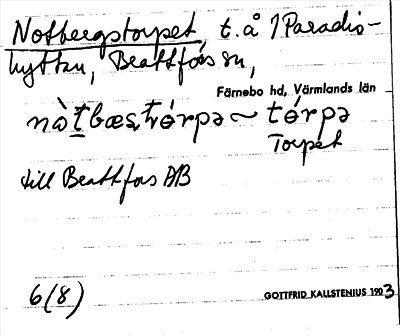 Notbergstorpet, t. å 1 Paradis-
hyttan, Brattfors sn,
Färnebo hd, Värmlands län
nòtbæs̩tórpə ~ tórpə
Torpet
till Brattfors AB
6(8)
GOTTFRID KALLSTENIUS 1903